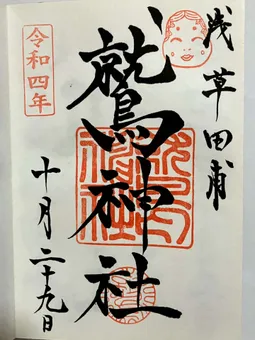 浅草田甫
鷲神社
令和四年
十月二十九日